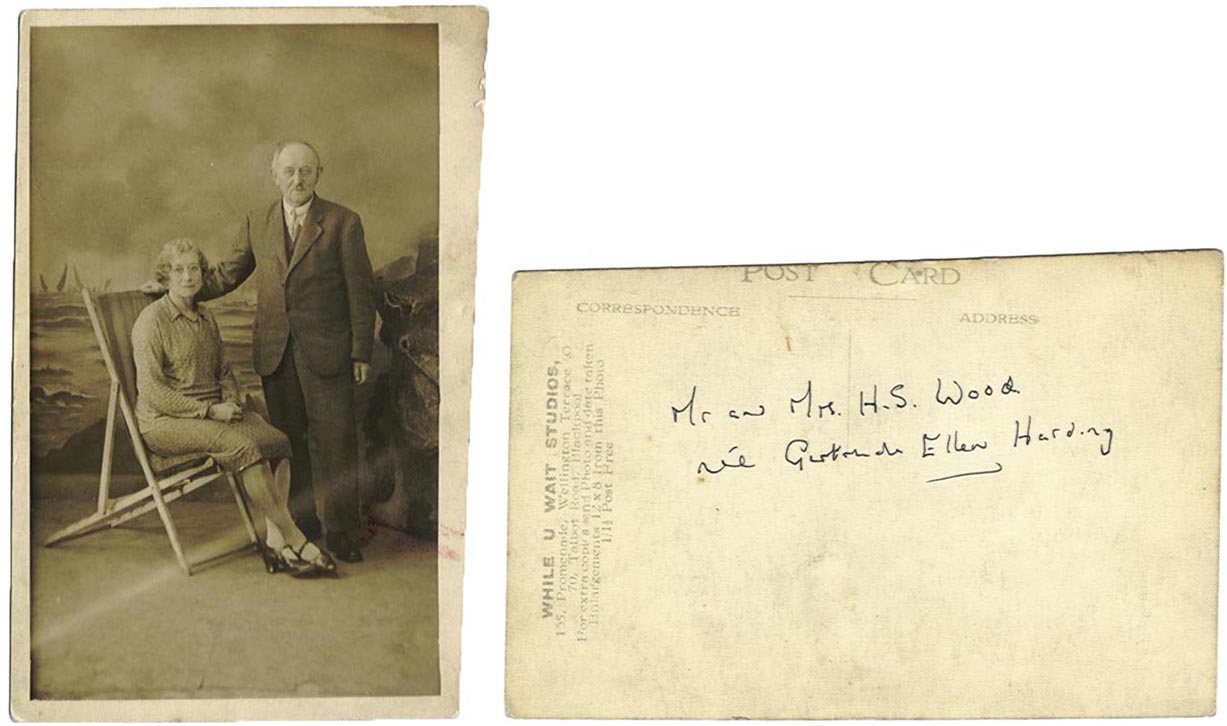 POST CARD
CORRESPONDENCE
ADDRESS
Mr and Mrs. H.S. Wood
née Gertrude Ellen Harding
WHILE U WAIT STUDIOS,
155, Promenade, Wellington Terrace &
70, Talbot Road, Blackpool
For extra copies send Photo and date taken
Enlargements 12 x 8 from this Photo
1/1½ Post Free